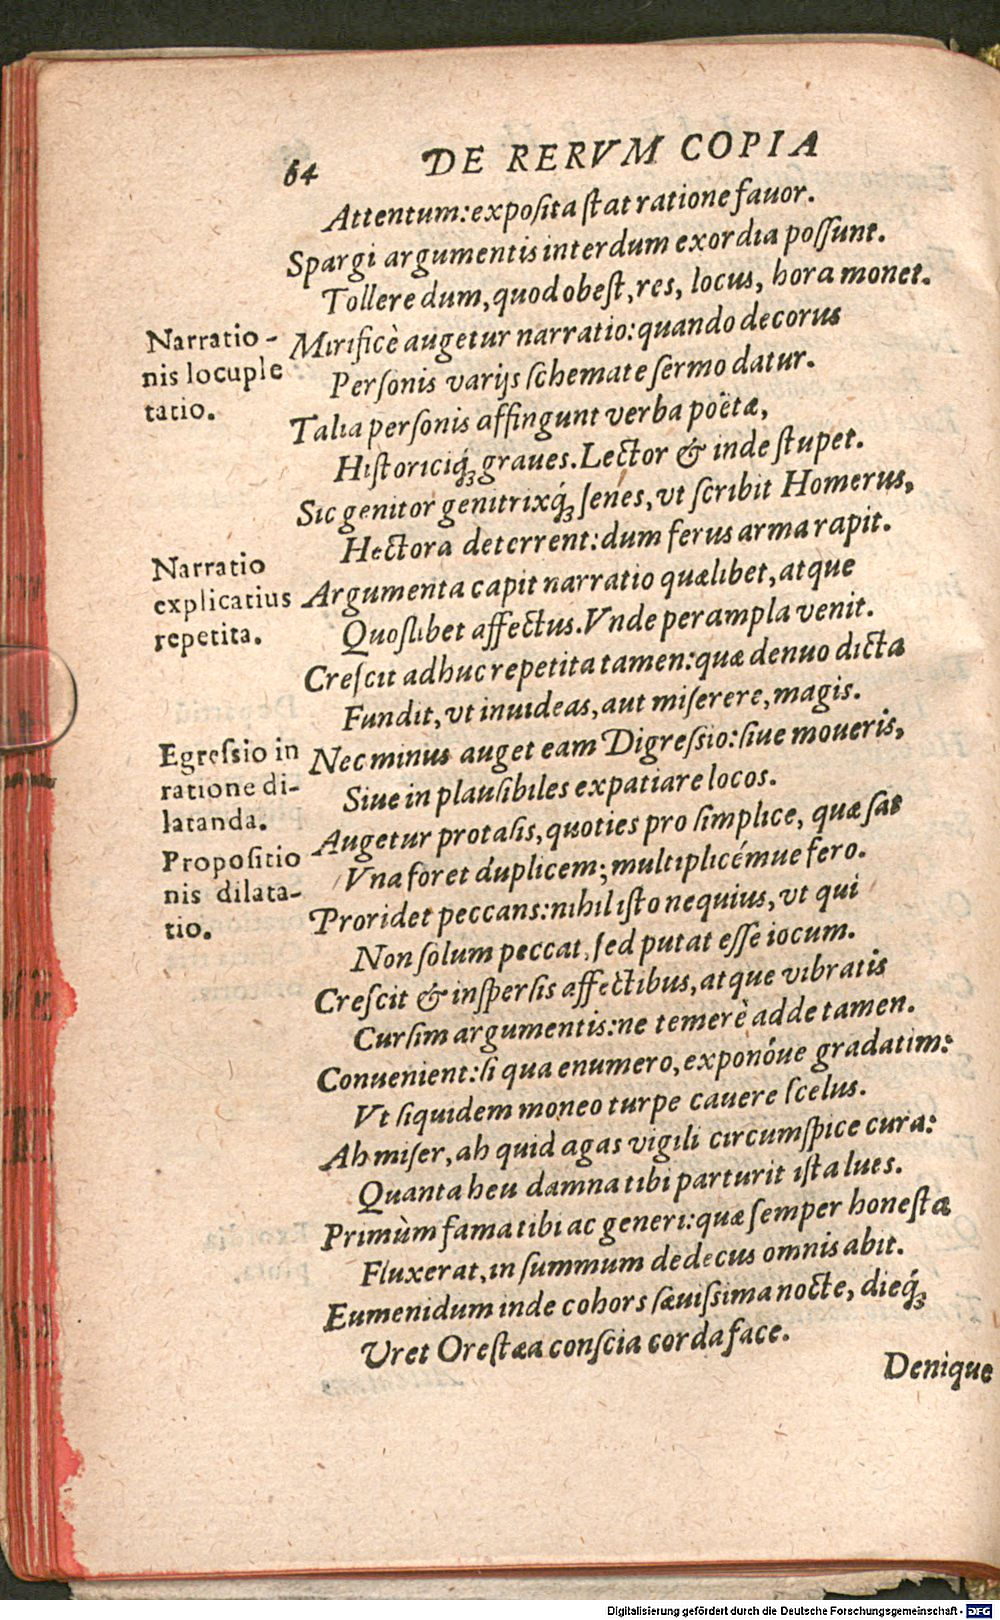 64 DE RERVM COPIA
Attentum: exposita stat ratione fauor.
Spargi argumentis interdum exordia possunt.
Tollere dum, quod obest, res, locus, hora monet.
Narratio-
nis locuple
tatio.
Mirificè augetur narratio: quando decorus
Personis varijs schemate sermo datur.
Talia personis affingunt verba poëtæ,
Historiciq́; graues. Lector & inde stupet.
Sic genitor genitrixq́; senes, vt scribit Homerus,
Hectora deterrent: dum ferus arma rapit.
Narratio
explicatius
repetita.
Argumenta capit narratio quælibet, atque
Quoslibet affectus. Vnde perampla venit.
Crescit adhuc repetita tamen: quæ denuo dicta
Fundit, vt inuideas, aut miserere, magis.
Egressio in
ratione di-
latanda.
Nec minus auget eam Digressio: siue moueris,
Siue in plausibiles expatiare locos.
Propositio
nis dilata-
tio.
Augetur protasis, quoties pro simplice, quæ sat
Vna foret duplicem; multiplicémue fero.
Proridet peccans: nihil isto nequius, vt qui
Non solum peccat, sed putat esse iocum.
Crescit & inspersis affectibus, atque vibratis
Cursim argumentis: ne temerè adde tamen.
Conuenient: si qua enumero, exponóue gradatim:
Vt siquidem moneo turpe cauere scelus.
Ah miser, ah quid agas vigili circumspice cura:
Quanta heu damna tibi parturit ista lues.
Primùm fama tibi ac generi: quæ semper honesta
Fluxerat, in summum dedecus omnis abit.
Eumenidum inde cohors sæuissima nocte, dieq́;
Vret Orestæa conscia corda face.
Denique
Digitalisierung gefördert durch die Deutsche Forschungsgemeinschaft - DFG